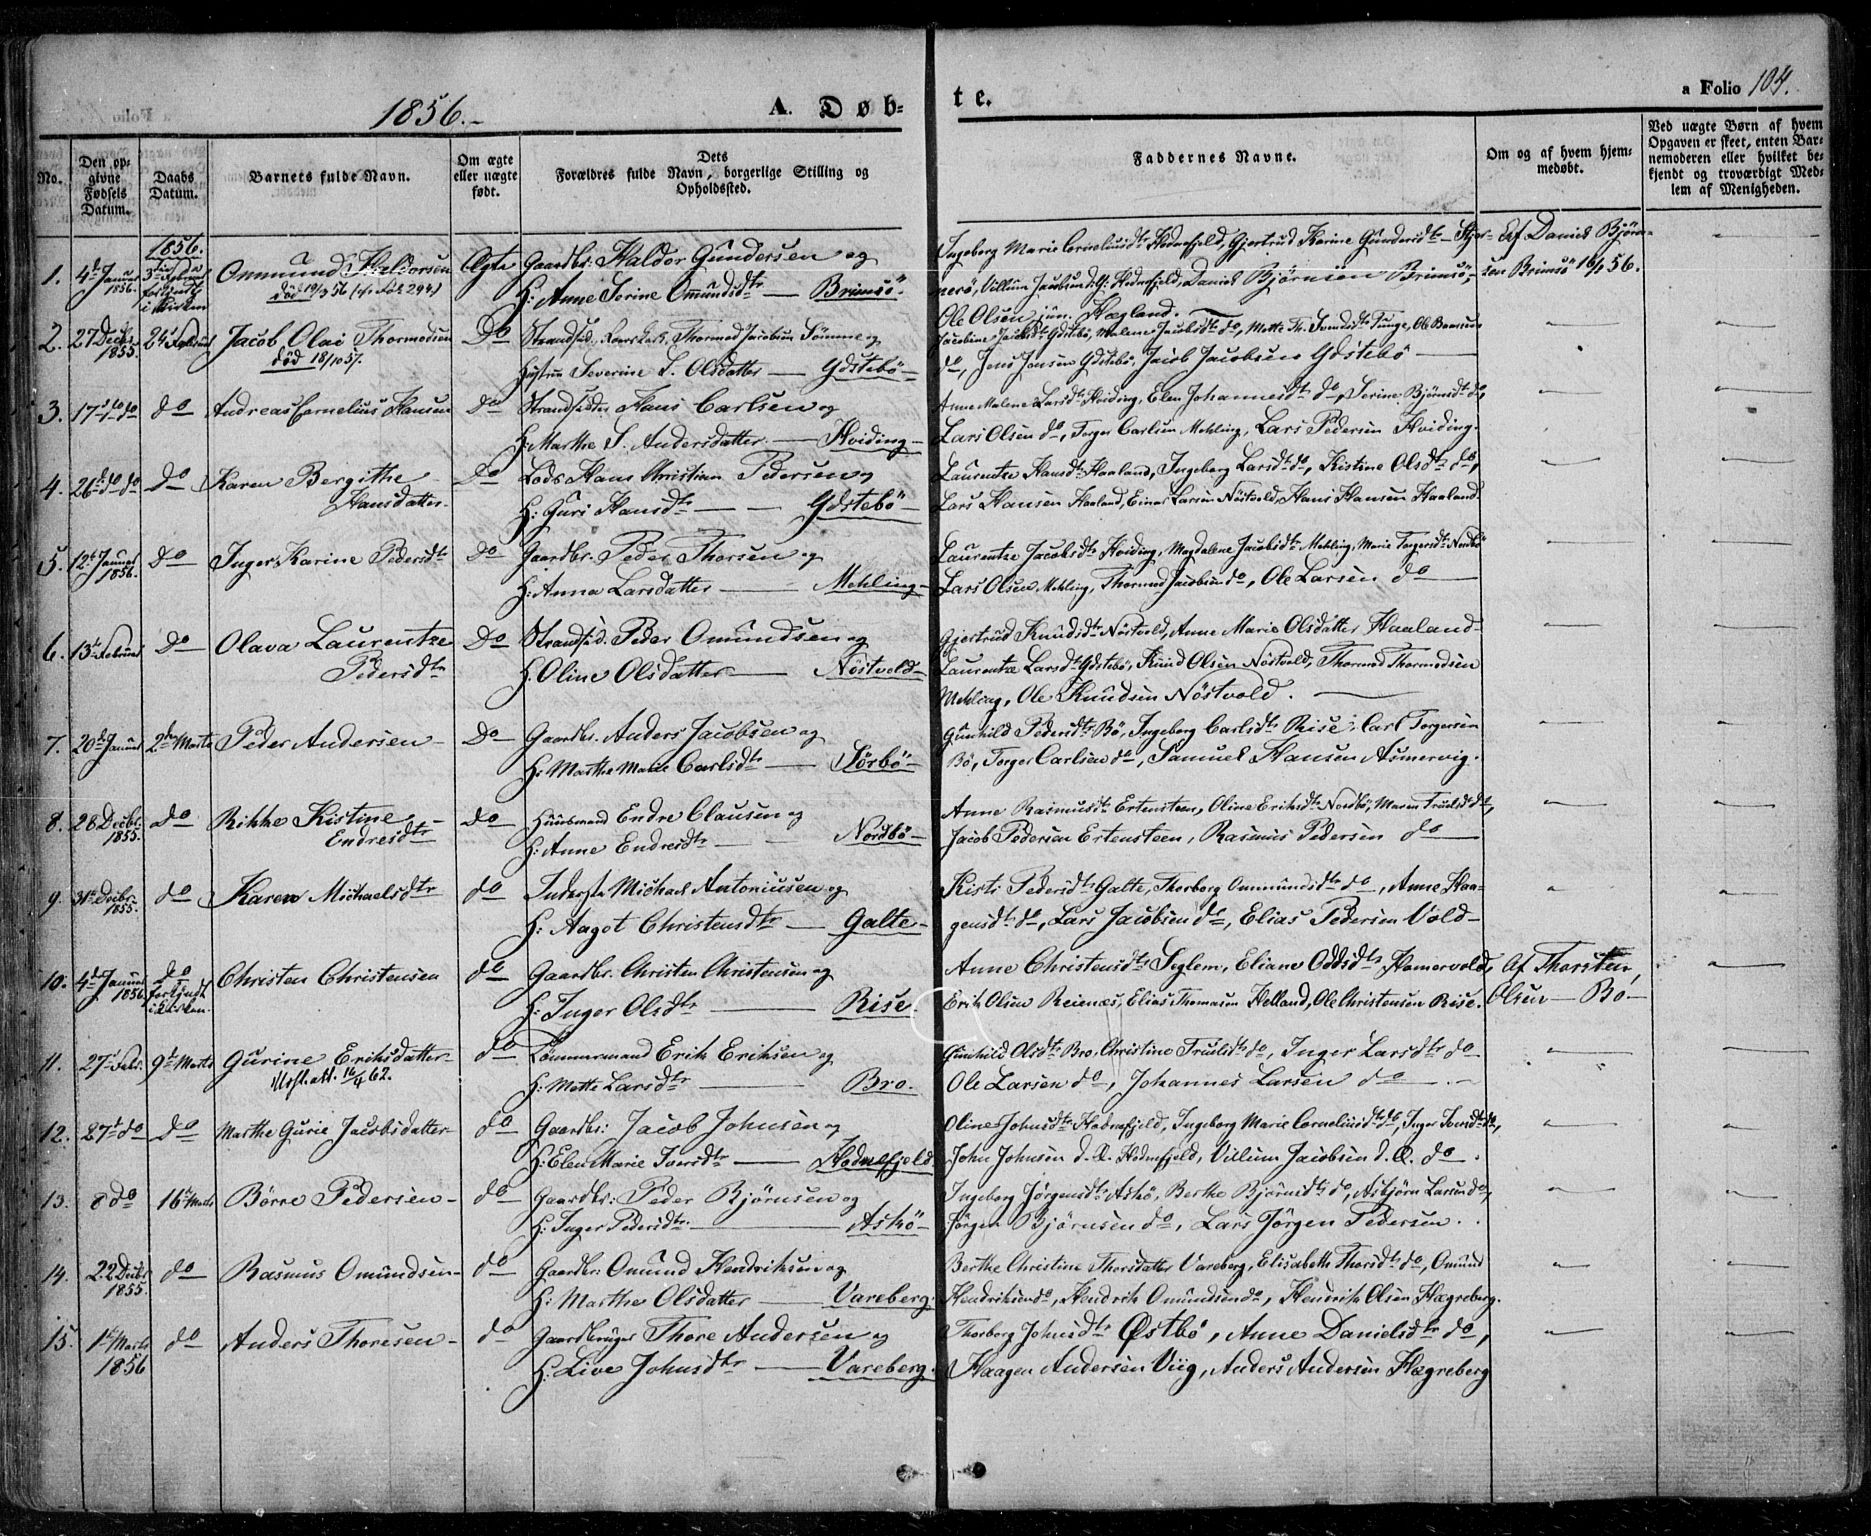 1856.-
A. Døb-
te.
a Folio 104.
No.
Den op-
givne
Fødsels
Datum.
Daabs
Datum.
Barnets fulde Navn.
Om ægte
eller uægte
født.
Dets
Forældres fulde Navn, borgerlige Stilling og
Opholdssted.
Faddernes Navne.
Om og af hvem hjem-
medøbt.
Ved uægte Børn af hvem
Opgaven er skeet, enten Bar-
nemoderen eller hvilket be-
kjendt og troværdigt Med-
lem af Menigheden.
1856.
1. 4de Januar 1856. Ommund Haldorsen Ægte Gaardbr: Haldor Gundersen og
død 19/3 56
H: Anne Serine Ommundsdtr — Brimsö
Ingeborg Marie Corneliusdtr Hodnefjeld, Gjertrud Karine Gundersdtr
Villum Jacobsen Hodnefjeld, Daniel Björnsen Brimsö,
Ole Olsen jun. Hægland.
Af Daniel Björn-
sen Brimsö 16/1 56.
2. 27 Decbr 1855. 24 Februar Jacob Olai Thormodsen Do Strandsid. Thormod Jacobsen Sömme og
død 18/10 57.
Hustru Severine S. Olsdatter — Ydstebö
Jacobine Jacobsdtr Ydstebö, Malene Jacobsdtr do, Mette Th. Svendsdtr Tunge,
do, Jens Jensen Ydstebö, Jacob Jacobsen Ydstebö
3. 17 do do do Andreas Cornelius Hansen Do Strandsidder Hans Carlsen og
H: Marthe S. Andersdatter — Hviding
Anne Malene Larsdtr Hviding, Elen Johannesdtr do, Serine Björnsdtr do,
Lars Olsen do, Torger Carlsen Mehling, Lars Pedersen Hviding.
4. 26 do do do Karen Bergithe Do Lods Hans Christian Pedersen og
Hansdatter.
H: Guri Hansdtr — Ydstebö
Laurentze Hansdtr Haaland, Ingeborg Larsdtr do, Kistine Olsdtr do,
Lars Hansen Haaland, Einar Larsen Nöstvold, Hans Hansen Haaland.
5. 12te Januar 1856. do Inger Karine Pedersdtr Do Gaardbr: Peder Thorsen og
H: Anna Larsdatter — Mehling
Laurentze Jacobsdtr Hviding, Magdalene Jacobsdtr Mehling, Marie Torgersdtr Nordbö
Lars Olsen Mehling, Thormod Jacobsen do, Ole Larsen do
6. 13 Februar Do Olava Laurentze Do Strandsid. Peder Omundsen og
Pedersdtr
H. Oline Olsdatter — Nöstvold
Gjertrud Knudsdtr Nöstvold, Anne Marie Olsdatter Haaland
Laurentze Larsdtr Ydstebö, Knud Olsen Nöstvold, Thormod Thormodsen
Mehling, Ole Knudsen Nöstvold.
7. 20de Januar 2den Marts Peder Andersen Do Gaardbr. Anders Jacobsen og
H: Marthe Marie Carlsdtr — Sörbö
Gunhild Pedersdtr Bö, Ingeborg Carlsdtr Rise, Carl Torgersen
Bö, Torger Carlsen do, Samuel Hansen Asmervig.
8. 28 Decbr. 1855. do Rikke Kistine do Huusmand Endre Clausen og
Endresdtr
H: Anne Endresdtr — Nordbö
Anne Rasmusdtr Ertensteen, Oline Eriksdtr Nordbö, Maren Trulsdtr do,
Jacob Pedersen Ertensteen, Rasmus Pedersen do
9. 31te Decbr. 1855. do Karen Michaelsdtr do Inderste Michael Antoniusen og
H: Aagot Christensdtr — Galte
Kisti Pedersdtr Galte, Thorborg Ommundsdtr do, Anne Haa-
gensdtr do, Lars Jacobsen do, Elias Pedersen Vold
10. 4de Januar 1856. do Christen Christensen do Gaardbr: Christen Christensen og
forkyndt
i Kirken.
H: Inger Olsdtr — Rise.
Anne Christensdtr Seglem, Eliane Oddsdtr Hamervold,
Erik Olsen Reianes, Elias Thomasen Helland, Ole Christensen Rise.
Af Thorsten
Olsen — Bö
11. 27 Febr. 9de Marts Gurine Eriksdatter do Tömmermand Erik Eriksen og
Udfl. att. 16/4 62.
H: Mette Larsdtr — Bro.
Gunhild Olsdtr Bro, Christine Trulsdtr do, Inger Larsdtr do
Ole Larsen do, Johannes Larsen do
12. 27 do do Marthe Gurie Jacobsdatter do Gaardbr: Jacob Johnsen og
H: Elen Marie Tonisdtr — Hodnefjeld
Oline Johnsdtr Hodnefjeld, Ingeborg Marie Corneliusdtr do, Inger do,
John Johnsen d. Æ. Hodnefjeld, Villum Jacobsen d. Æ. do.
13. 8 do 16 Marts Börre Pedersen do Gaardbr: Peder Björnsen og
H: Inger Pedersdtr. — Askö
Ingeborg Jörgensdtr Askö, Berthe Björnsdtr do, Asbjörn Larsen do,
Jörgen Björnsen do, Lars Jörgen Pedersen.
14. 22 Decbr 1855. do Rasmus Omundsen do Gaardbr: Omund Hendriksen og
H: Marthe Olsdatter — Vareberg.
Berthe Christine Thorsdatter Vareberg, Elisabeth Thorsdtr do, Omund
Hendriksen do, Hendrik Omundsen do, Hendrik Olsen Hægreberg.
15. 1te Marts 1856 do Anders Thoresen do Gaardbruger Thore Andersen og
H: Live Johnsdtr — Vareberg.
Thorborg Johnsdtr Østbö, Anne Danielsdtr do,
Haagen Andersen Viig, Anders Andersen Hægreberg